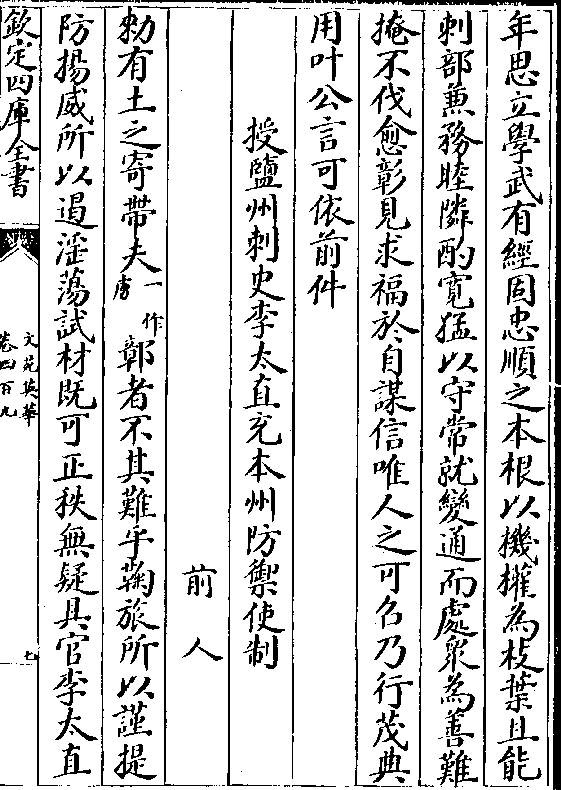 年思立學武有經固忠順之本根以機權為枝葉且能
刺部兼務睦隣酌寛猛以守常就變通而處衆為善難
掩不伐愈彰見求福於自謀信唯人之可名乃行茂典
用叶公言可依前件
授鹽州刺史李太直充本州防禦使制
前人
勑有土之寄帶夫一作唐鄣者不其難乎鞠旅所以謹提
防揚威所以遏淫蕩試材既可正秩無疑具官李太直
欽定四庫全書
文苑英華
卷四百九
七